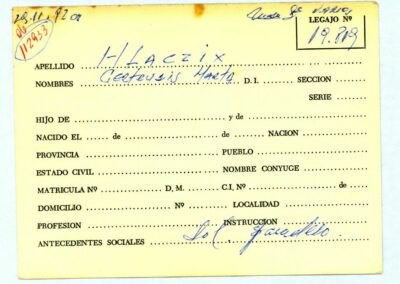 29.11.92
LEGAJO Nº
112933
19.819
APELLIDO HLACZIX
NOMBRES Marta D. I. SECCION
SERIE
HIJO DE y de
NACIDO EL de de NACION
PROVINCIA PUEBLO
ESTADO CIVIL NOMBRE CONYUGE
MATRICULA Nº D. M. C.I. Nº de
DOMICILIO Nº LOCALIDAD
PROFESION INSTRUCCION
ANTECEDENTES SOCIALES Sol. paradero